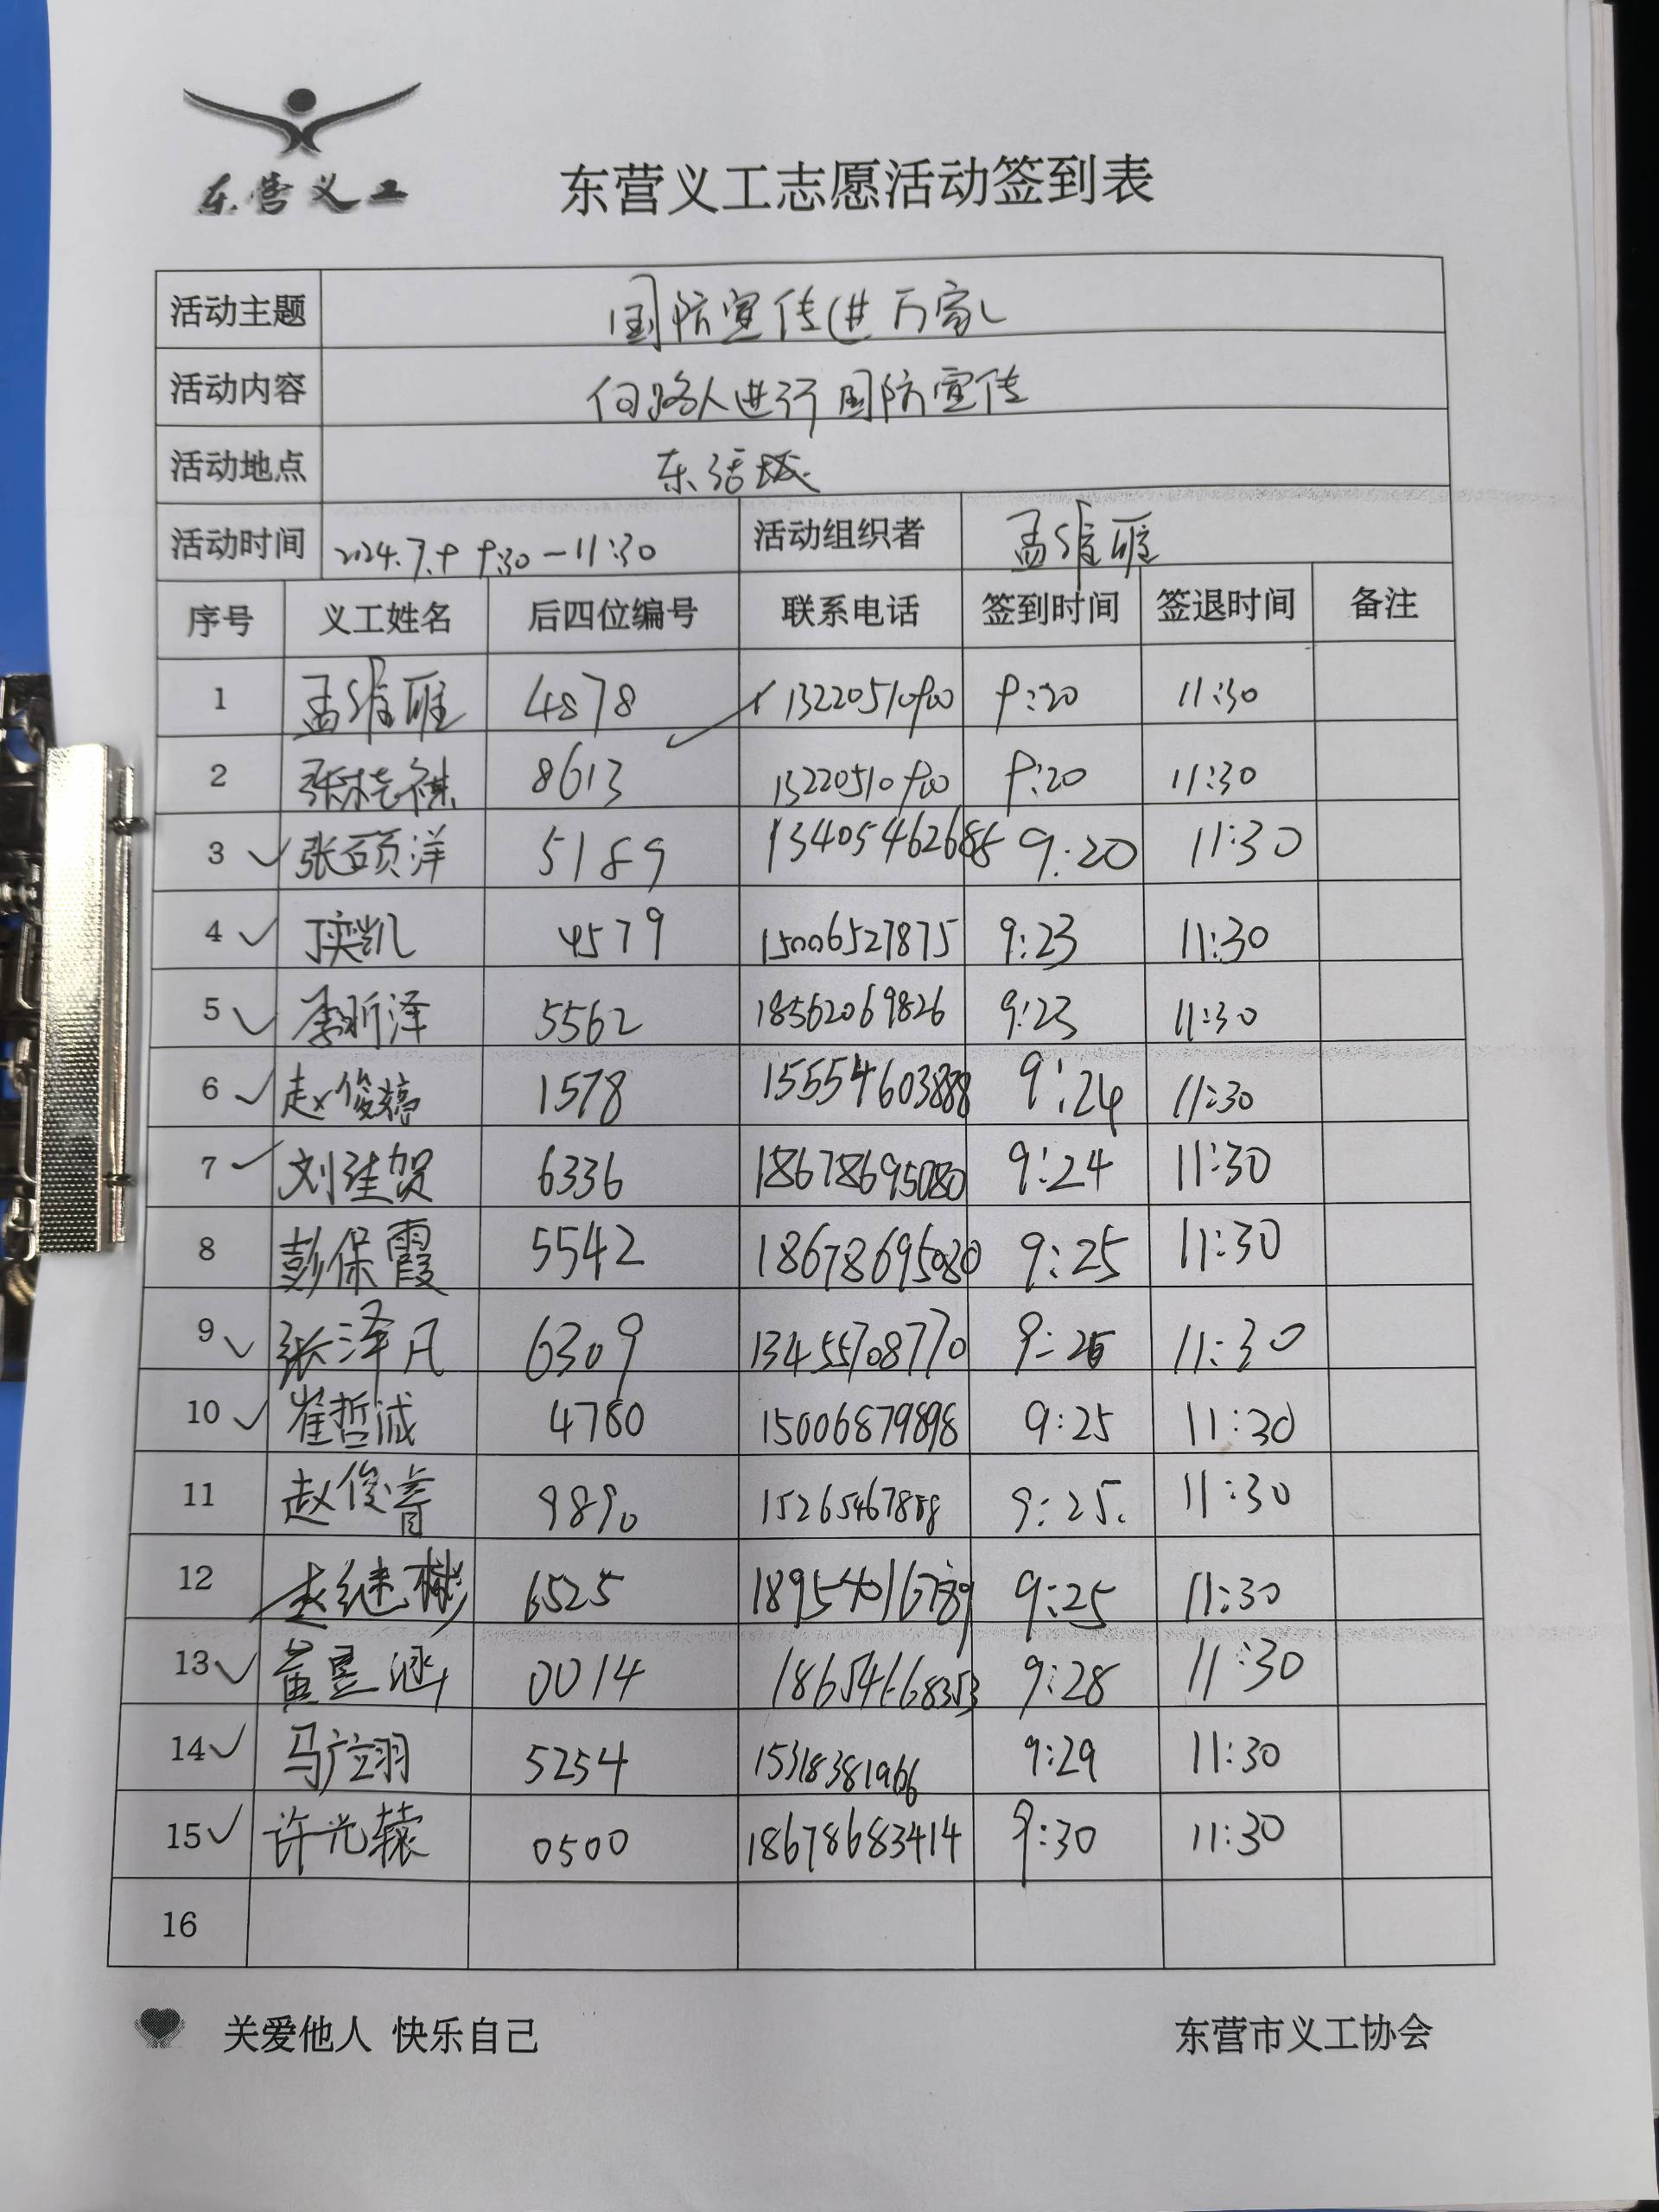 东营义工
东营义工志愿活动签到表
活动主题 国防宣传进万家
活动内容 向路人进行国防宣传
活动地点 东活城
活动时间 2024.7.9 9:30-11:30 活动组织者 孟维雁
序号 义工姓名 后四位编号 联系电话 签到时间 签退时间 备注
1 孟维雁 4878 13220510900 9:20 11:30
2 8613 13220510900 9:20 11:30
3 张硕洋 5189 9:20 11:30
4 丁奕凯 4579 15006527875 9:23 11:30
5 李昕泽 5562 18562069826 9:23 11:30
6 赵俊 1578 15554603888 9:24 11:30
7 刘 贺 6336 18678695080 9:24 11:30
8 彭保霞 5542 18678695080 9:25 11:30
9 张泽凡 6309 13455708770 11:30
10 崔哲诚 4780 15006879898 9:25 11:30
11 赵俊睿 9890 15265467888 9:25. 11:30
12 赵继彬 6525 18954016789 9:25 11:30
13 黄昱涵 0014 18654668353 9:28 11:30
14 马 羽 5254 15318381966 9:29 11:30
15 许光辕 0500 18678683414 9:30 11:30
16
关爱他人 快乐自己
东营市义工协会